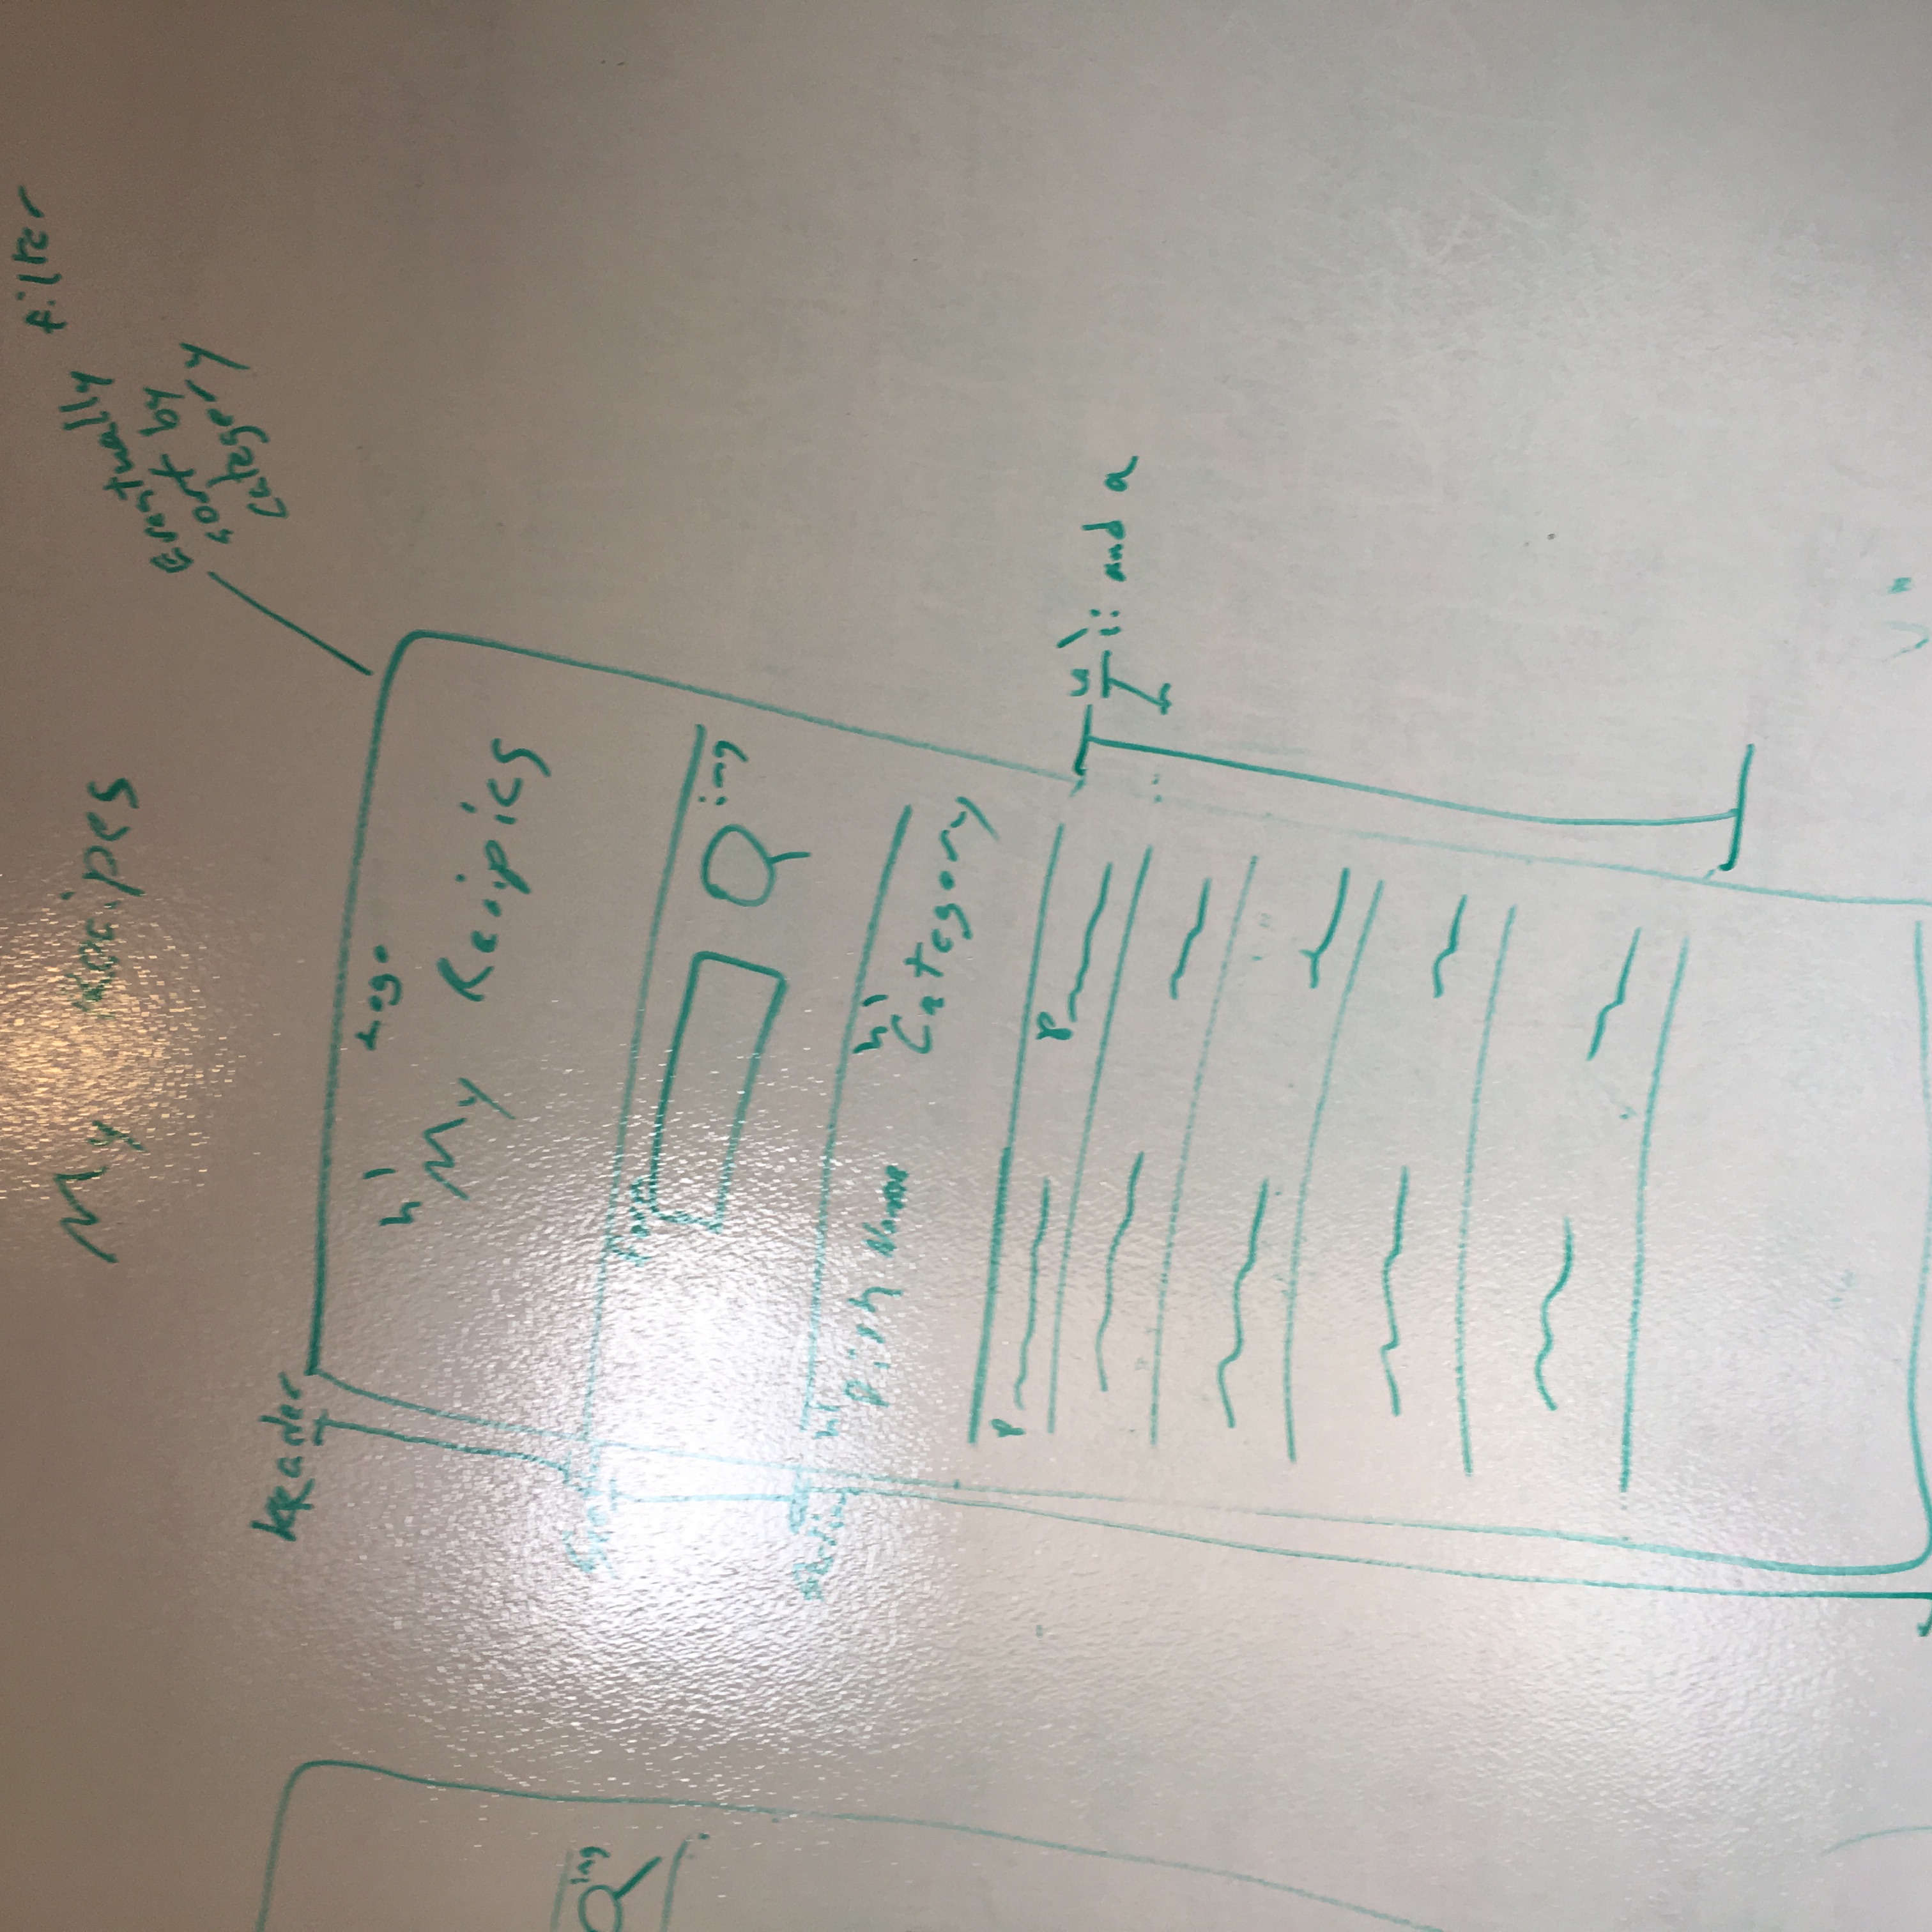 My Recipes
Eventually filter
sort by
category
Header
Logo
h1
My Recipies
Form
ing
ing
h1
Dish Name
h1
Category
P
P
ul
li and a